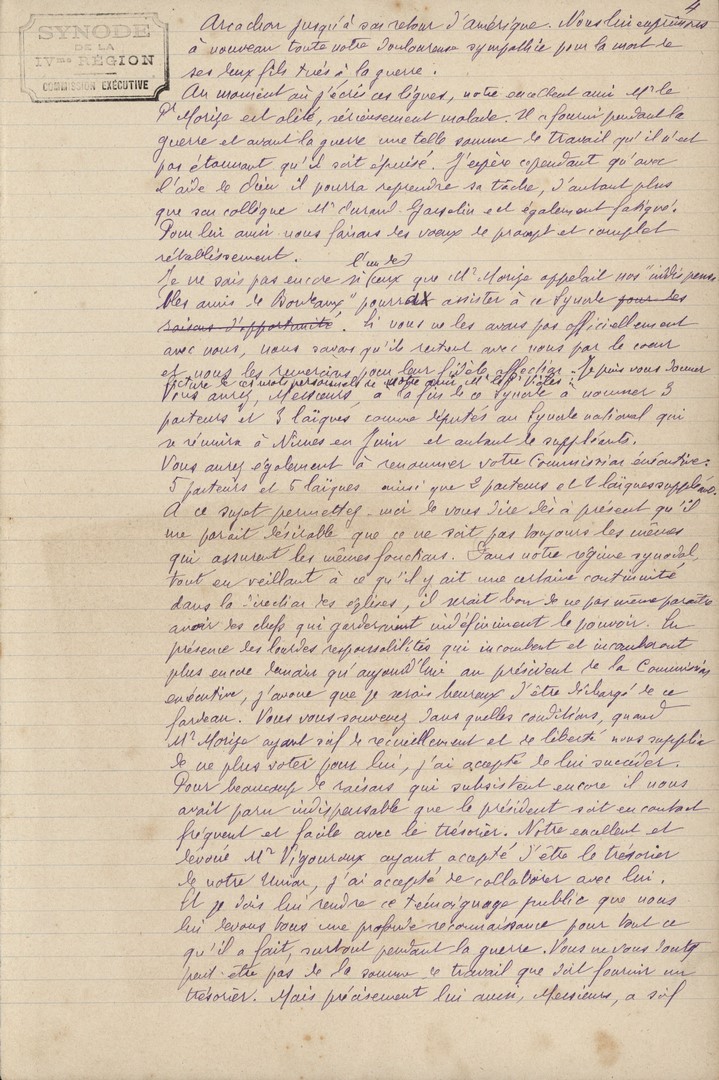 4
SYNODE
DE LA
IVme RÉGION
COMMISSION EXÉCUTIVE
Arcachon jusqu'à son retour d'Amérique. Nous lui exprimons
à nouveau toute votre douloureuse sympathie pour la mort de
ses deux fils tués à la guerre.
Au moment où j'écris ces lignes, notre excellent ami Mr le
Pr Morize est alité, sérieusement malade. Il a fourni pendant la
guerre et avant la guerre une telle somme de travail qu'il n'est
pas étonnant qu'il soit épuisé. J'espère cependant qu'avec
l'aide de Dieu il pourra reprendre sa tâche, d'autant plus
que son collègue Mr Durand-Gasselin est également fatigué.
Pour lui aussi nous faisons des vœux de prompt et complet
rétablissement.
l'un de
Je ne sais pas encore si ceux que Mr Morize appelait nos "indispensa-
bles amis de Bordeaux" pourra assister à ce Synode pour des
raisons d'opportunité. Si vous ne les avons pas officiellement
avec nous, nous savons qu'ils restent avec nous par le cœur
et nous les remercions pour leur fidèle affection. Je puis vous donner
lecture de ces mots personnels de notre ami, Mr le Pr
Vous aurez, Messieurs, à la fin de ce Synode à nommer 3
pasteurs et 3 laïques comme députés au Synode national qui
se réunira à Nîmes en Juin et autant de suppléants.
Vous aurez également à renommer votre Commission exécutive:
5 pasteurs et 5 laïques ainsi que 2 pasteurs et 2 laïques suppléants.
A ce sujet permettez-moi de vous dire dès à présent qu'il
me paraît désirable que ce ne soit pas toujours les mêmes
qui assurent les mêmes fonctions. Dans notre régime synodal,
tout en veillant à ce qu'il y ait une certaine continuité
dans la direction des églises, il serait bon de ne pas même paraître
avoir des chefs qui garderaient indéfiniment le pouvoir. En
présence des lourdes responsabilités qui incombent et incomberont
plus encore demain qu'aujourd'hui au président de la Commission
exécutive, j'avoue que je serais heureux d'être déchargé de ce
fardeau. Vous vous souvenez dans quelles conditions, quand
Mr Morize ayant soif de recueillement et de liberté nous supplia
de ne plus voter pour lui, j'ai accepté de lui succéder.
Pour beaucoup de raisons qui subsistent encore il nous
avait paru indispensable que le président soit en contact
fréquent et facile avec le trésorier. Notre excellent et
dévoué Mr Vigouroux ayant accepté d'être le trésorier
de notre Union, j'ai accepté de collaborer avec lui.
Et je dois lui rendre ce témoignage public que nous
lui devons tous une profonde reconnaissance pour tout ce
qu'il a fait, surtout pendant la guerre. Vous ne vous doutez
peut-être pas de la somme de travail que doit fournir un
trésorier. Mais précisément lui aussi, Messieurs, a soif